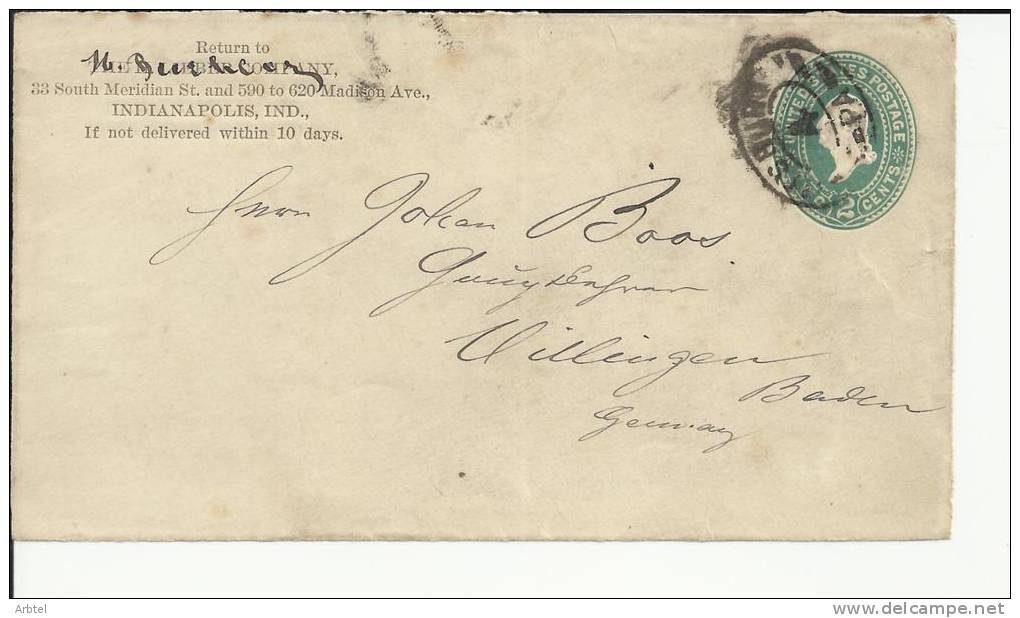 Return to
COMPANY,
33 South Meridian St. and 590 to 620 Madison Ave.,
INDIANAPOLIS, IND.,
If not delivered within 10 days.
UNITED STATES POSTAGE
2 CENTS
Herrn Johan Boos
Villingen
Baden
Germany
Arbtel
www.delcampe.net